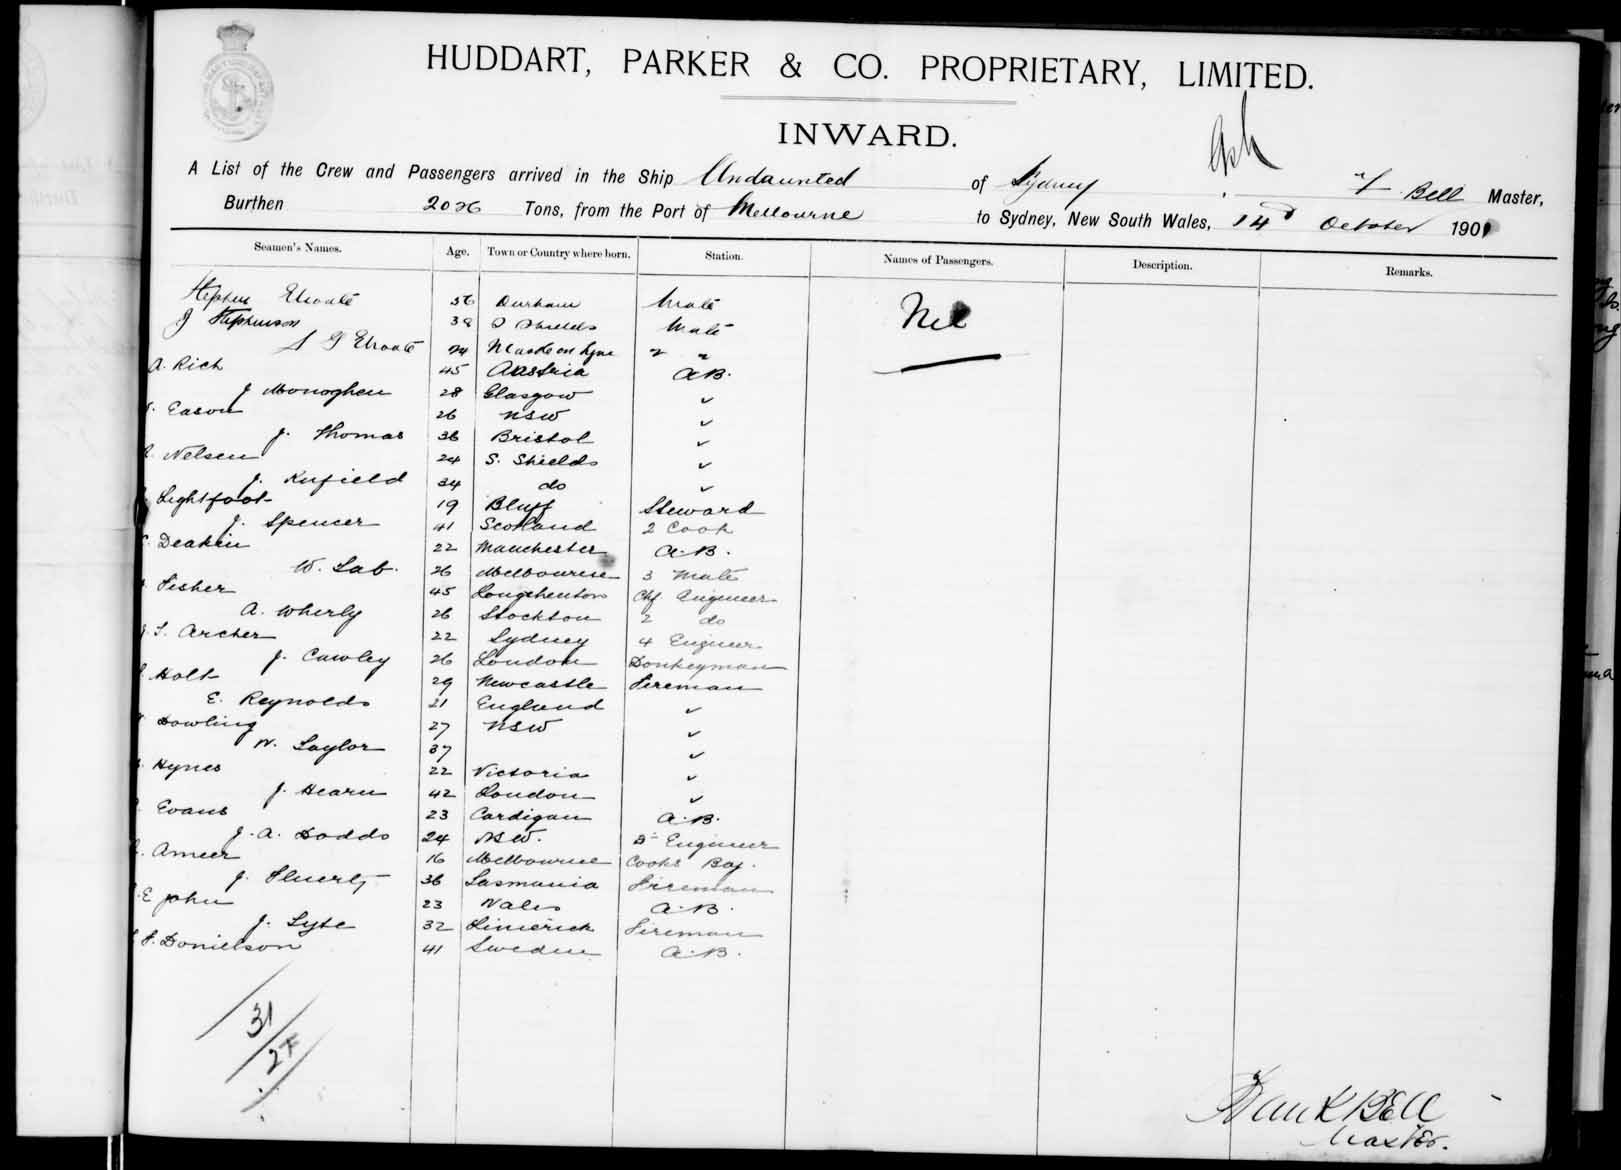 HUDDART, PARKER & CO. PROPRIETARY, LIMITED.
INWARD.
A List of the Crew and Passengers arrived in the Ship Undaunted of Sydney, F. Bell Master,
Burthen 2026 Tons, from the Port of Melbourne to Sydney, New South Wales, 14 October 1901
Seamen's Names. Age. Town or Country where born. Station. Names of Passengers. Description. Remarks.
36 Durham Mate Nil
J Stephenson 38 S Shields Mate
24 " "
A. Rich 45 Austria A.B.
J Monoghen 28 Glasgow ✓
Eason 26 NSW ✓
J. Thomas 36 Bristol ✓
Nelsen 24 S. Shields ✓
J. 34 do ✓
Lightfoot 19 Bluff Steward
J. Spencer 41 Scotland 2 Cook
Deakin 22 Manchester A.B.
W. 26 Melbourne 3 Mate
Fisher 45 Chf Engineer
A. Wherly 26 Stockton 2 do
S. Archer 22 Sydney 4 Engineer
J. Cawley 26 London Donkeyman
Holt 29 Newcastle Fireman
E. Reynolds 21 England ✓
Dowling 27 NSW ✓
W. Taylor 37 ✓
Hynes 22 Victoria ✓
J. Hearn 42 London ✓
Evans 23 Cardigan A.B.
J. A. Dodds 24 NSW. Engineer
Ameer 16 Melbourne Cooks Boy.
J. 36 Tasmania Fireman
E John 23 Wales A.B.
J. Lyte 32 Limerick Fireman
F. Danielson 41 Sweden A.B.
31
Frank Bell
Master.